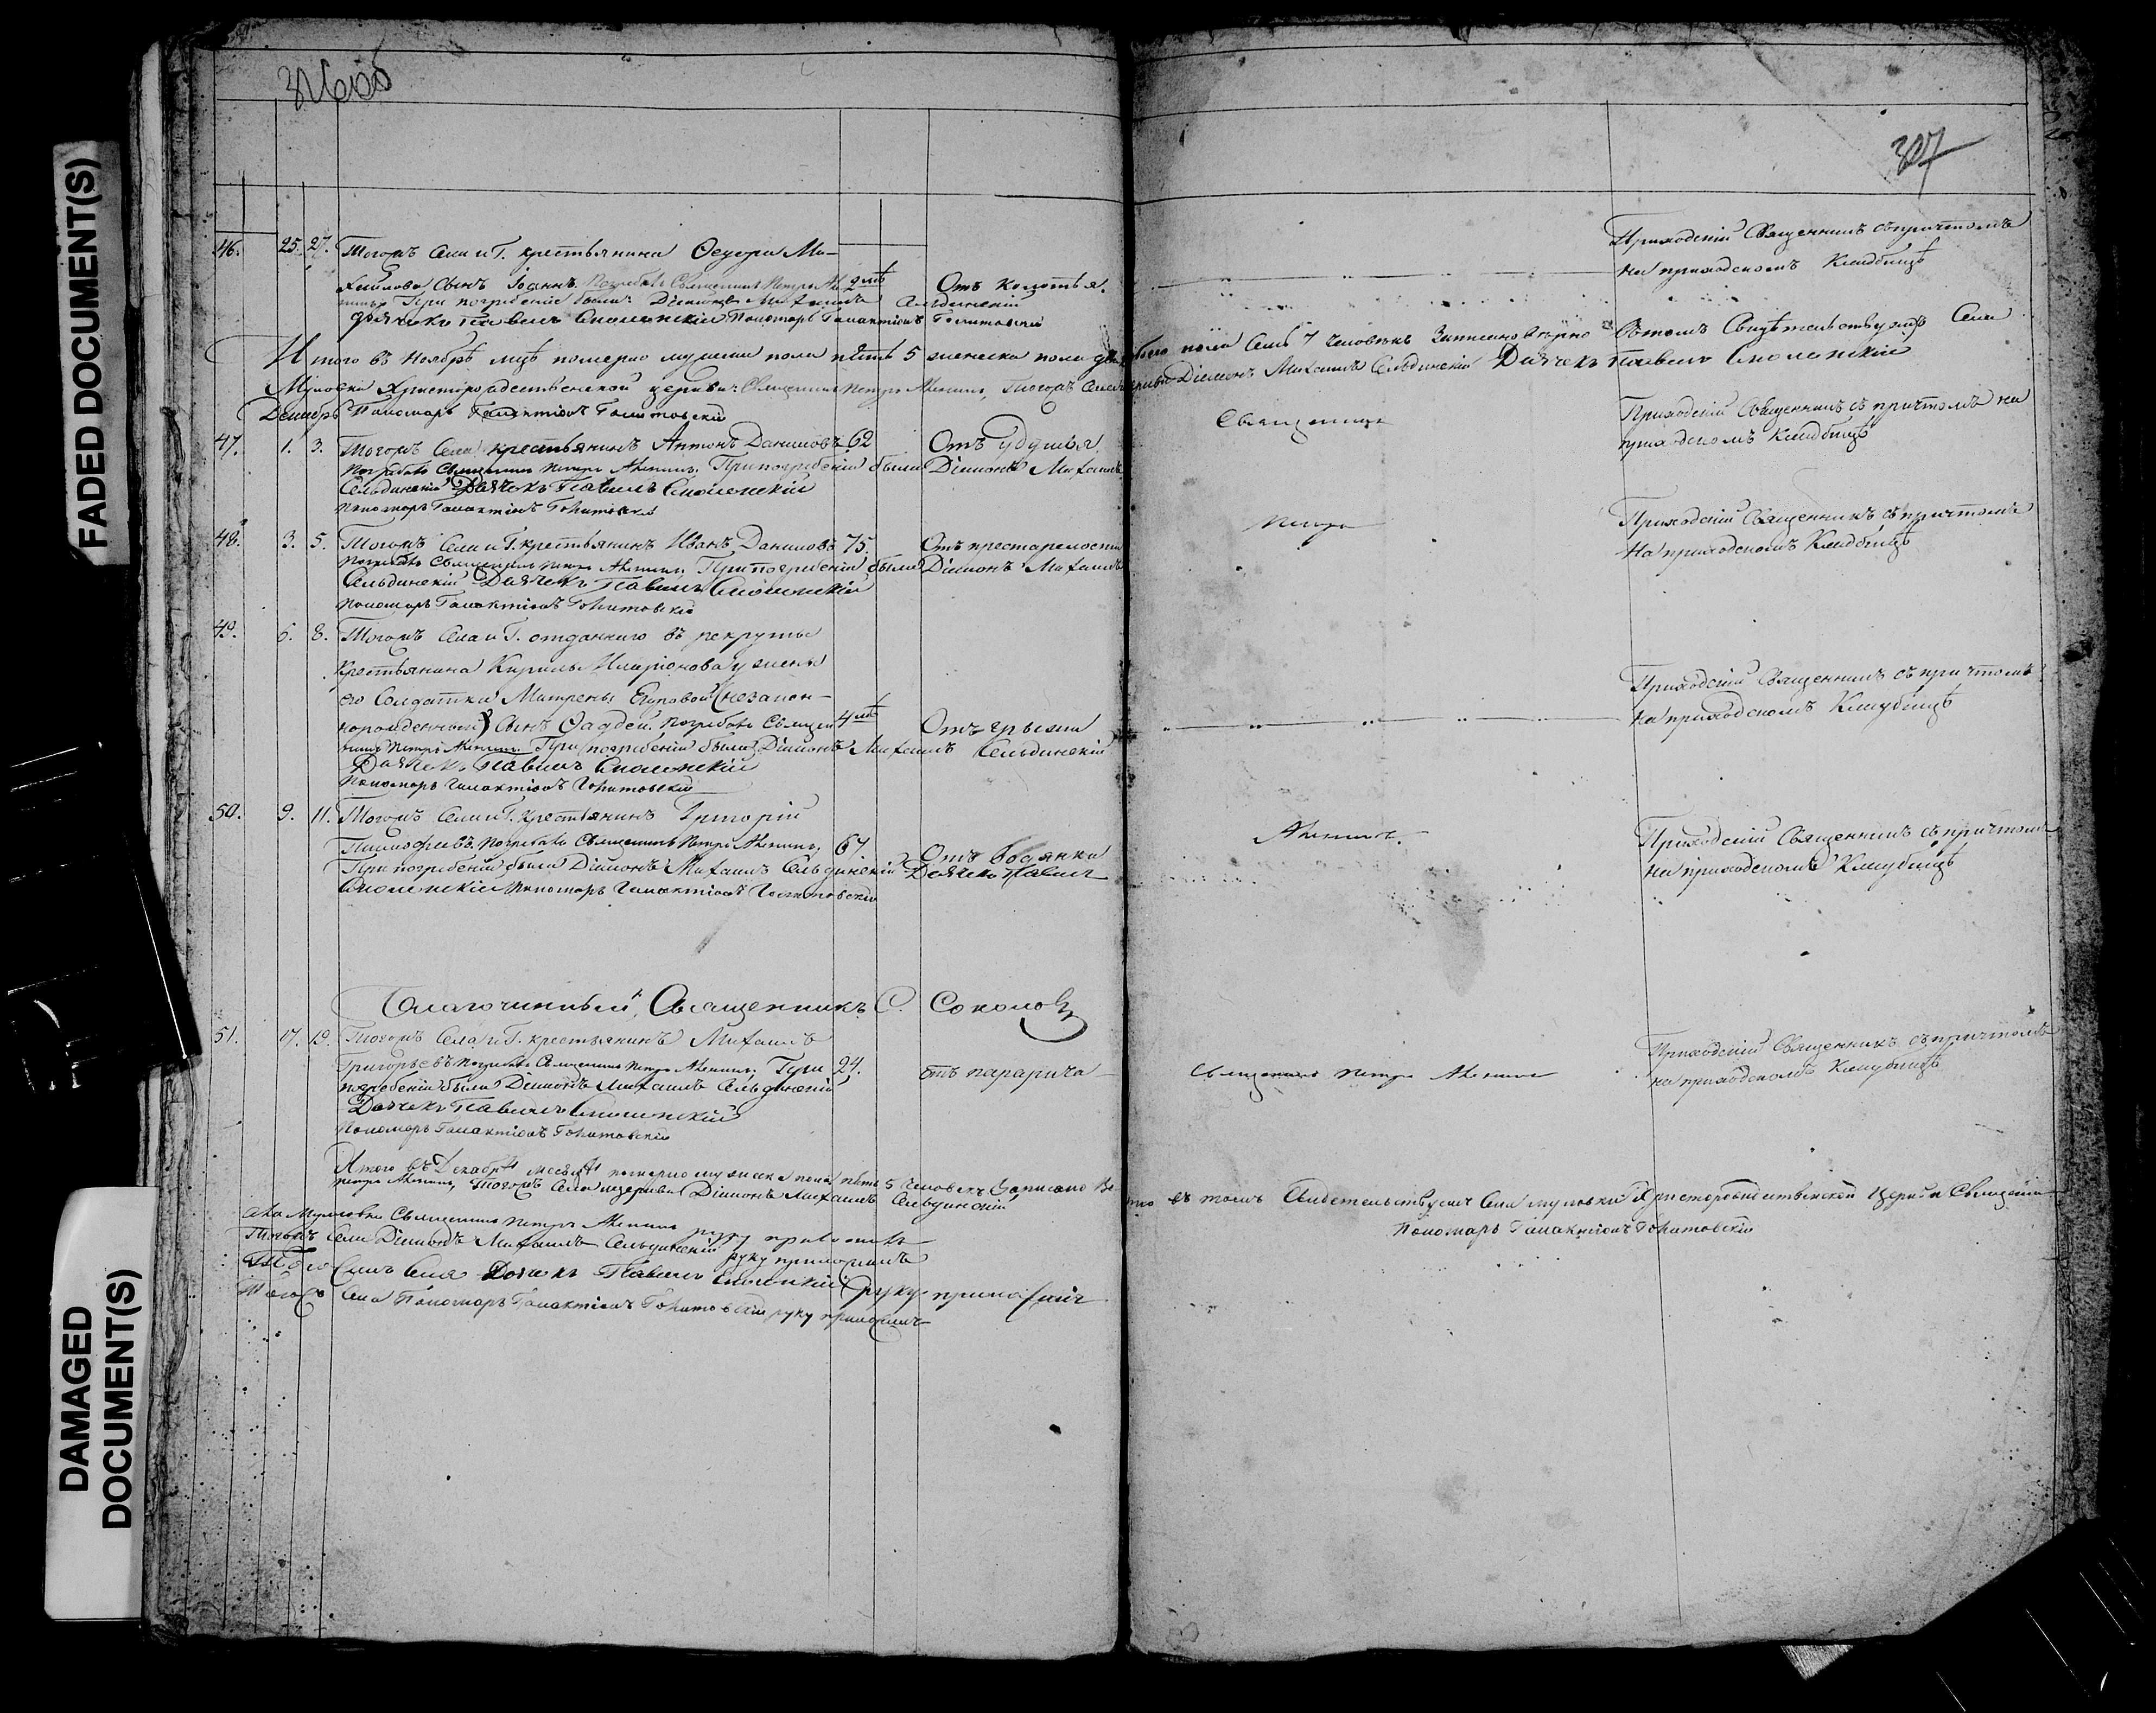 FADED DOCUMENT(S)
DAMAGED
DOCUMENT(S)
306об
307
46. 25. 27. Тогожъ Села и Г. крестьянина Ѳедора Ми-
хайлова сынъ Іоаннъ. Погребалъ Священникъ Петръ 2 лѣтъ Отъ колотья.
При погребеніи были Діаконъ Михаилъ Сельдинскій
Дьячекъ Павелъ Смоленскій Пономарь Галактіонъ
Приходскій Священникъ съ причтомъ
на приходскомъ Кладбищѣ
Итого въ Ноябрѣ м҃цѣ померло мужеска пола пять 5 женска пола два обоего пола семь 7 человѣкъ Записано вѣрно Въ томъ Свидѣтельствуемъ Села
Муловки Христорождественской церкви Священникъ Петръ Тогожъ Села церкви Діаконъ Михаилъ Сельдинскій Дьячекъ Павелъ Смоленскій
Декабрь Пономарь Галактіонъ
47. 1. 3. Тогожъ Села крестьянинъ Антонъ Даниловъ 62 Отъ удушья
Погребалъ Священникъ Петръ При погребеніи были Діаконъ Михаилъ
Сельдинскій Дьячекъ Павелъ Смоленскій
Пономарь Галактіонъ
Священникъ
Приходскій Священникъ съ причтомъ на
приходскомъ Кладбищѣ
48. 3. 5. Тогожъ Села и Г. крестьянинъ Иванъ Даниловъ 75. Отъ престарелости
Погребалъ Священникъ Петръ При погребеніи были Діаконъ Михаилъ
Сельдинскій Дьячекъ Павелъ Смоленскій
Пономарь Галактіонъ
Петръ
Приходскій Священникъ съ причтомъ
На приходскомъ Кладбищѣ
49. 6. 8. Тогожъ Села и Г. отданнаго въ рекруты
крестьянина Кирилы Иларіонова у жены
его Солдатки Матрены Егоровой (незакон-
норожденный) Сынъ Ѳаддей. Погребалъ Священ- 4 лѣтъ Отъ грыжи
никъ Петръ При погребеніи были Діаконъ Михаилъ Сельдинскій
Дьячекъ Павелъ Смоленскій
Пономарь Галактіонъ
Приходскій Священникъ съ причтомъ
на приходскомъ Кладбищѣ
50. 9. 11. Тогожъ Села и Г. крестьянинъ Григорій
Тимофеевъ. Погребалъ Священникъ Петръ 67 Отъ водянки
При погребеніи были Діаконъ Михаилъ Сельдинскій Дьячекъ Павелъ
Смоленскій Пономарь Галактіонъ
Приходскій Священникъ съ причтомъ
на приходскомъ Кладбищѣ
Благочинный, Священникъ С. Соколовъ
51. 17. 19. Тогожъ Села и Г. крестьянинъ Михаилъ
Григорьевъ Погребалъ Священникъ Петръ При 24. отъ паралича
погребеніи были Діаконъ Михаилъ Сельдинскій
Дьячекъ Павелъ Смоленскій
Пономарь Галактіонъ
Священникъ Петръ
Приходскій Священникъ съ причтомъ
на приходскомъ Кладбищѣ
Итого въ Декабрѣ месяцѣ померло мужеска пола пять 5 человекъ Записано въ томъ Свидетельствуемъ Села Муловки Христорождественской Церкви Священникъ
Петръ Тогожъ Села церкви Діаконъ Михаилъ Сельдинскій Пономарь Галактіонъ
Села Муловки Священникъ Петръ руку приложилъ
Тогожъ Села Діаконъ Михаилъ Сельдинскій руку приложилъ
Тогожъ Села Дьячекъ Павелъ Смоленскій руку приложилъ
Тогожъ Села Пономарь Галактіонъ руку приложилъ